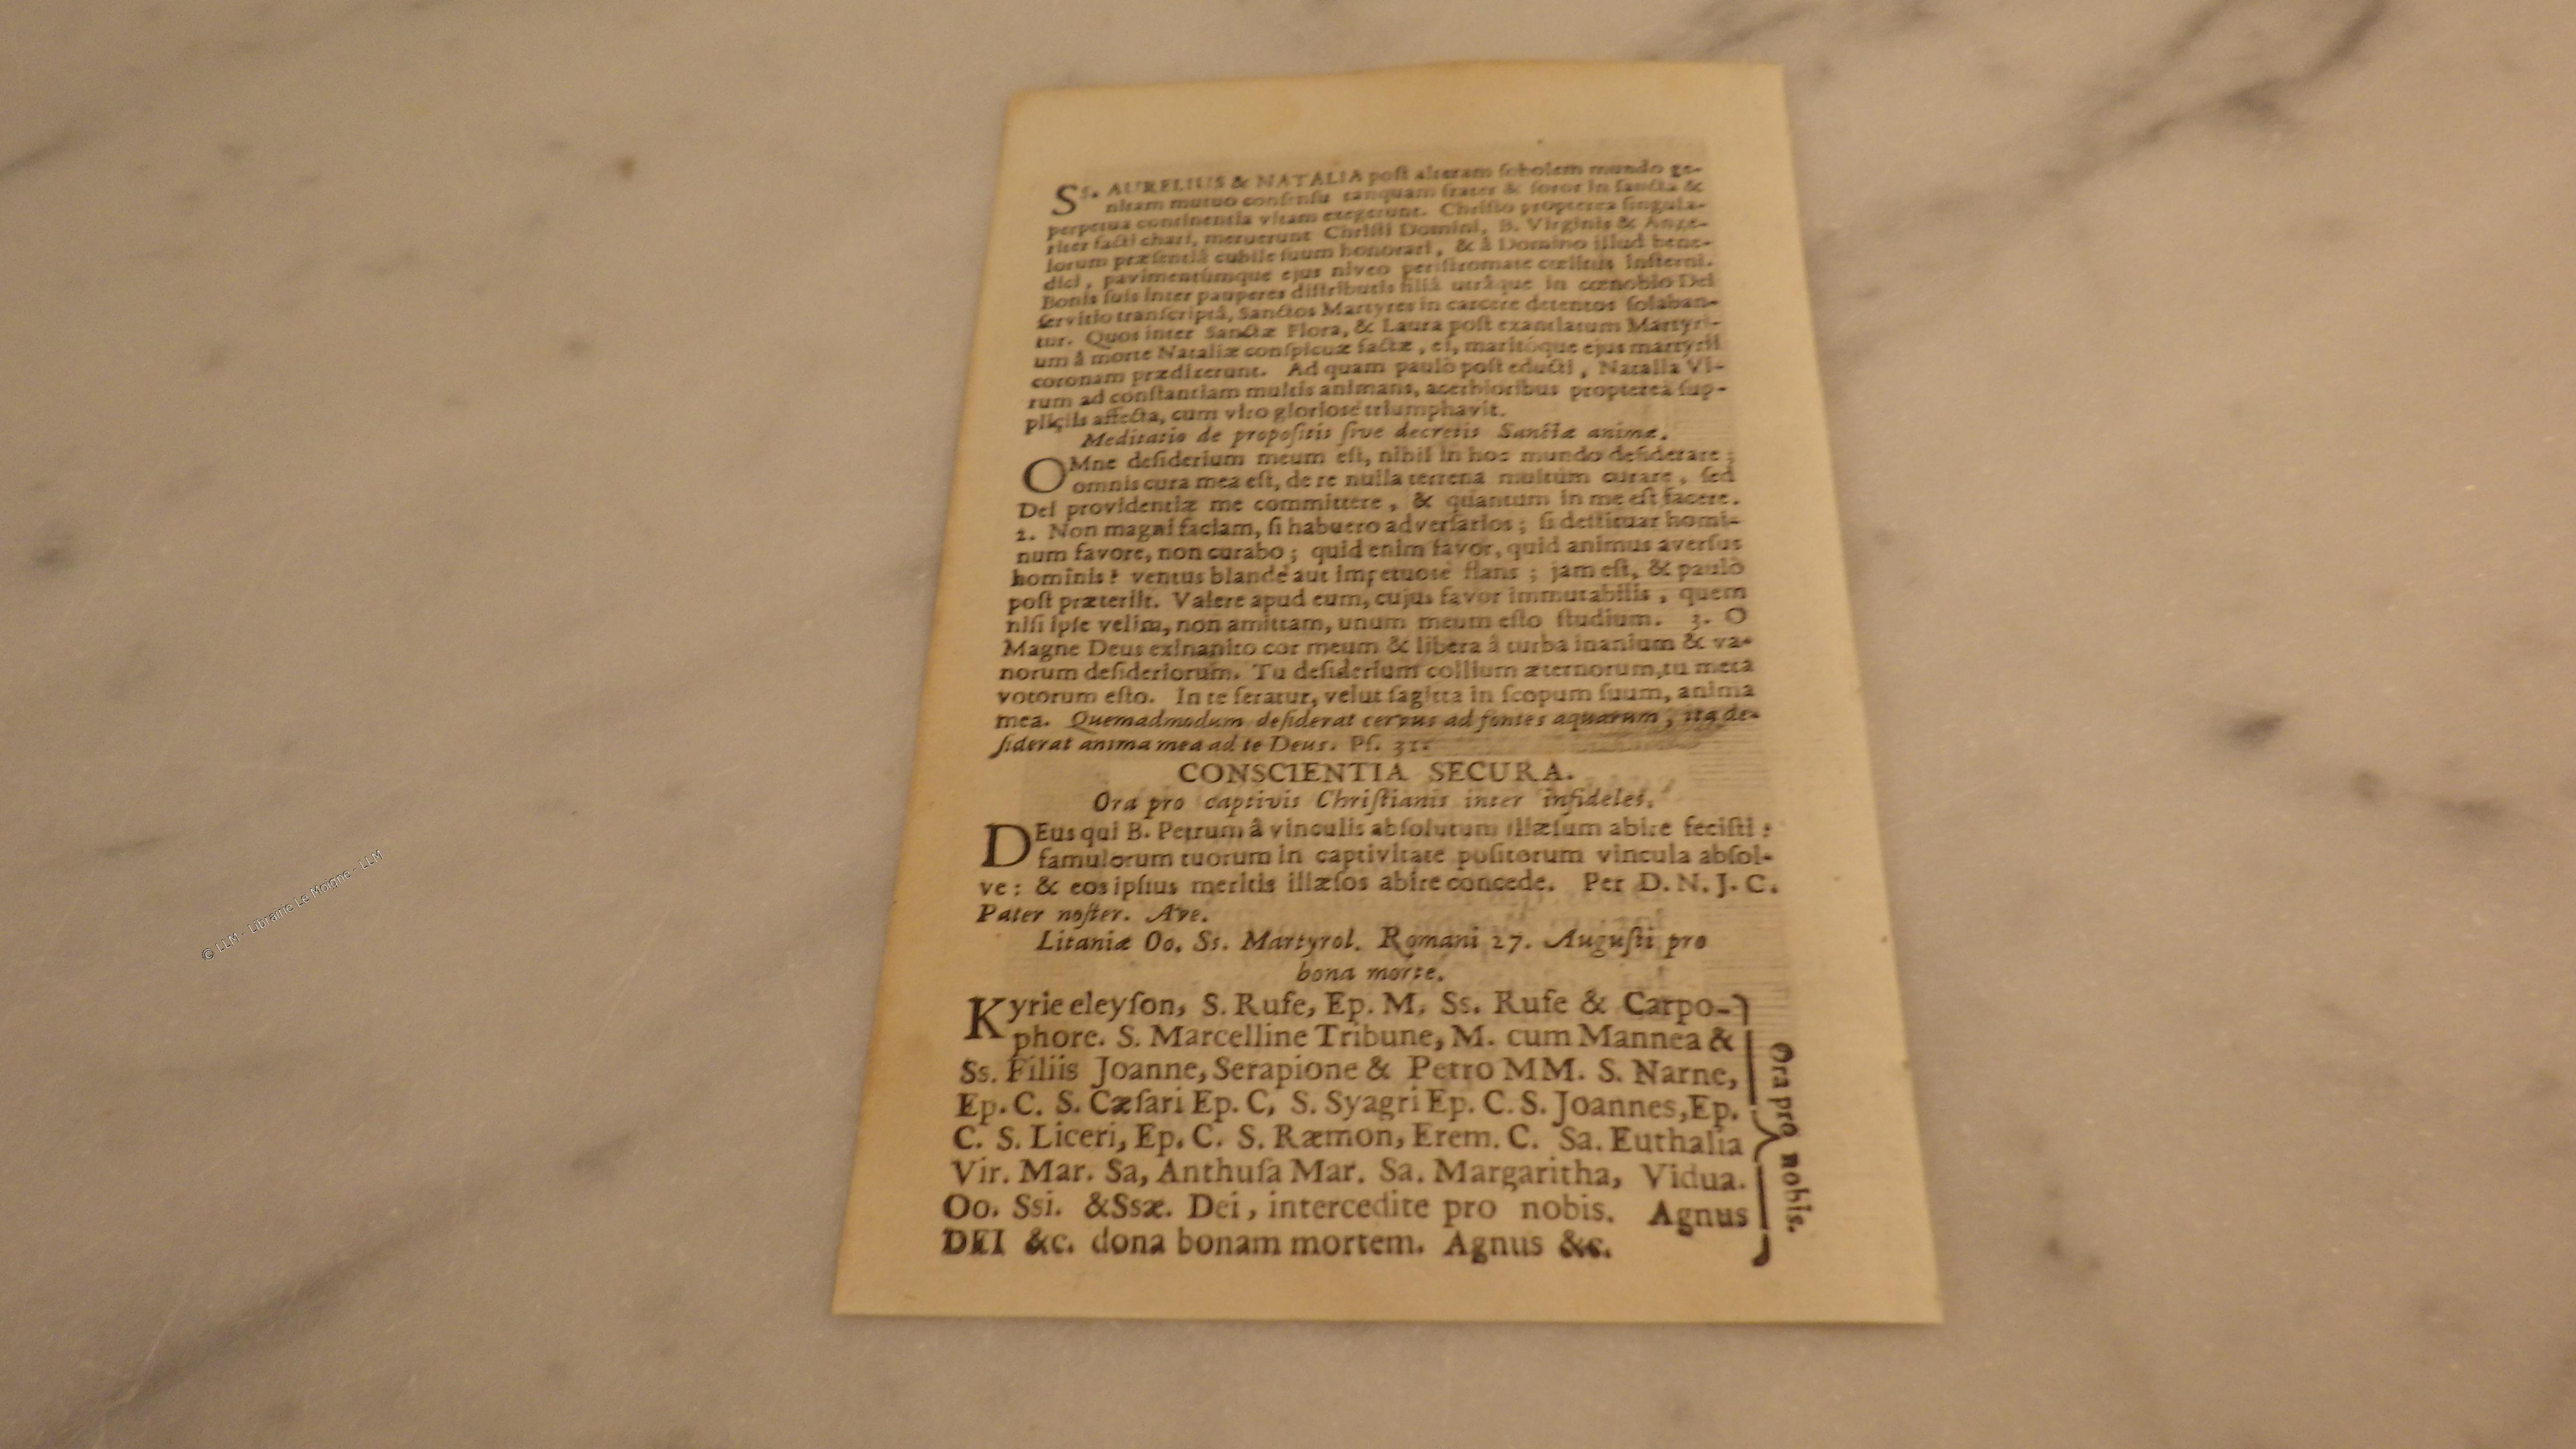 Ss. AURELIUS & NATALIA poſt alteram ſobolem mundo ge-
nitam mutuo conſenſu tanquam frater & ſoror in ſancta &
perpetua continentia vitam exegerunt. Chriſto propterea ſingula-
riter facti chari, meruerunt Chriſti Domini, B. Virginis & Ange-
lorum præſentiâ cubile ſuum honorari, & â Domino illud bene-
dici, pavimentumque ejus niveo periſtromate cœlitus inſterni.
Bonis ſuis inter pauperes diſtributis filiâ utrâque in cœnobio Dei
ſervitio tranſcriptâ, Sanctos Martyres in carcere detentos ſolaban-
tur. Quos inter Sanctæ Flora, & Laura poſt exantlatum Martyri-
um â morte Nataliæ conſpicuæ factæ, ei, maritóque ejus martyrii
coronam prædixerunt. Ad quam paulò poſt educti, Natalia Vi-
rum ad conſtantiam multis animans, acerbioribus propterea ſup-
pliciis affecta, cum viro glorioſe triumphavit.
Meditatio de propoſitis ſive decretis Sanctæ animæ.
OMne deſiderium meum eſt, nihil in hoc mundo deſiderare;
omnis cura mea eſt, de re nulla terrena multùm curare, ſed
Dei providentiæ me committere, & quantum in me eſt facere.
2. Non magni faciam, ſi habuero adverſarios; ſi deſtituar homi-
num favore, non curabo; quid enim favor, quid animus averſus
hominis? ventus blandè aut impetuosè flans; jam eſt, & paulò
poſt præteriit. Valere apud eum, cujus favor immutabilis, quem
niſi ipſe velim, non amittam, unum meum eſto ſtudium. 3. O
Magne Deus exinanito cor meum & libera â turba inanium & va-
norum deſideriorum. Tu deſiderium collium æternorum, tu meta
votorum eſto. In te feratur, velut ſagitta in ſcopum ſuum, anima
mea. Quemadmodum deſiderat cervus ad fontes aquarum, ita de-
ſiderat anima mea ad te Deus. Pſ. 31.
CONSCIENTIA SECURA.
Ora pro captivis Chriſtianis inter infideles.
DEus qui B. Petrum â vinculis abſolutum illæſum abire feciſti:
famulorum tuorum in captivitate poſitorum vincula abſol-
ve: & eos ipſius meritis illæſos abire concede. Per D. N. J. C.
Pater noſter. Ave.
Litaniæ Oo. Ss. Martyrol. Romani 27. Auguſti pro
bona morte.
Kyrie eleyſon, S. Rufe, Ep. M. Ss. Rufe & Carpo-
phore. S. Marcelline Tribune, M. cum Mannea &
Ss. Filiis Joanne, Serapione & Petro MM. S. Narne,
Ep. C. S. Cæſari Ep. C, S. Syagri Ep. C. S. Joannes, Ep.
C. S. Liceri, Ep. C. S. Ræmon, Erem. C. Sa. Euthalia
Vir. Mar. Sa, Anthuſa Mar. Sa. Margaritha, Vidua.
Oo. Ssi. & Ssæ. Dei, intercedite pro nobis. Agnus
DEI &c. dona bonam mortem. Agnus &c.
Ora pro nobis.
© LLM - Librairie Le Moigne - LLM